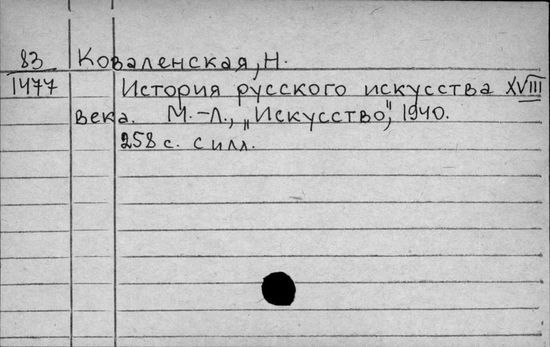 83 Коваленская, Н.
1477 История русского искусства XVIII
века. М.-Л., „Искусство", 1940.
258 с. с илл.